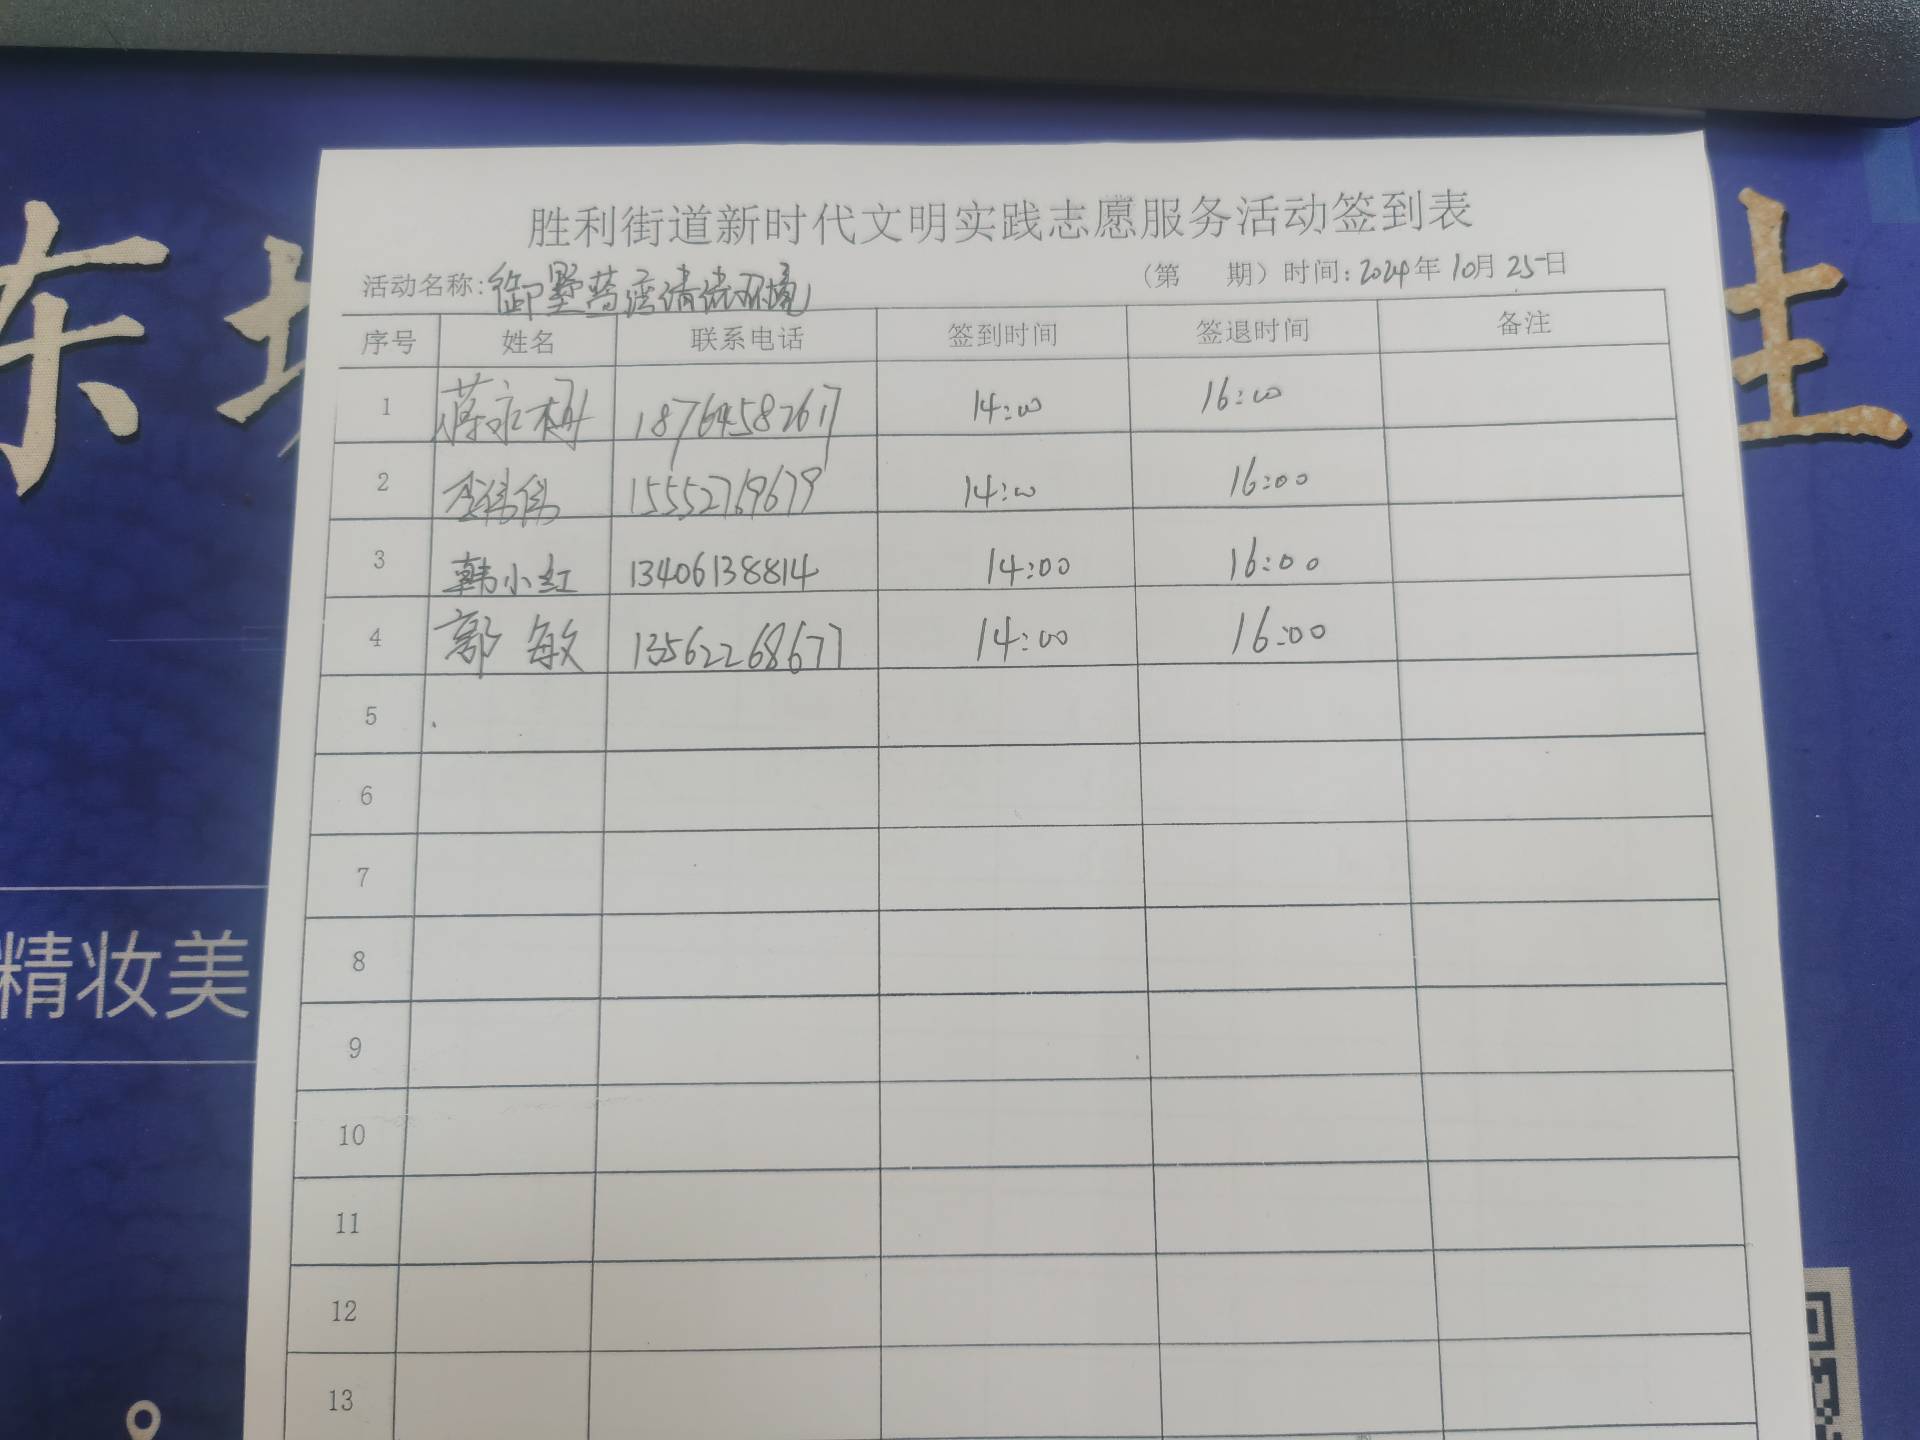 胜利街道新时代文明实践志愿服务活动签到表
活动名称:御墅蓝湾清洁环境 (第 期) 时间:2024年10月25日
序号 姓名 联系电话 签到时间 签退时间 备注
1 18764582617 14:00 16:00
2 李伟伟 15552769679 14:00 16:00
3 韩小红 13406138814 14:00 16:00
4 郭敏 13562268677 14:00 16:00
5
6
7
8
9
10
11
12
13
东 生
精妆美